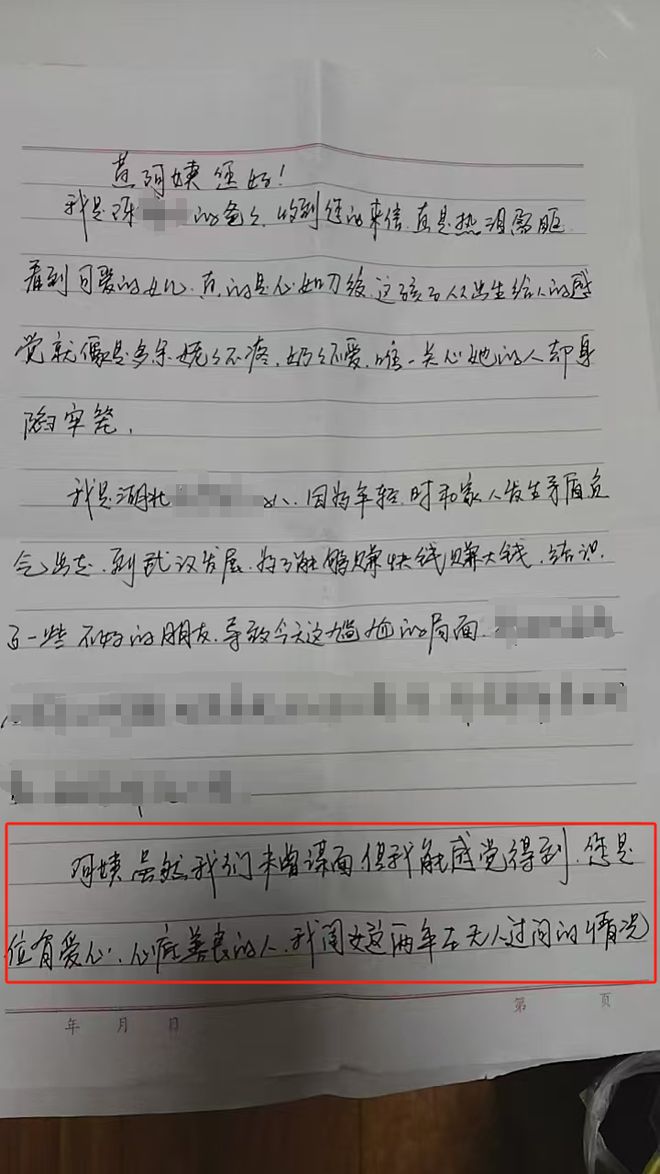 黄阿姨您好！
我是陈 的爸爸，收到您的来信，真是热泪盈眶
看到可爱的女儿，真的是心如刀绞，这孩子从出生给人的感
觉就像是多余，妈妈不疼，奶奶不爱，唯一关心她的人却身
陷牢笼，
我是湖北 人，因为年轻时和家人发生矛盾负
气出走，到武汉发展，为了能够赚快钱赚大钱，结识
了一些不好的朋友，导致今天这尴尬的局面，
阿姨虽然我们未曾谋面，但我能感觉得到，您是
位有爱心、心底善良的人，我闺女这两年在无人过问的情况
年 月 日 第 页